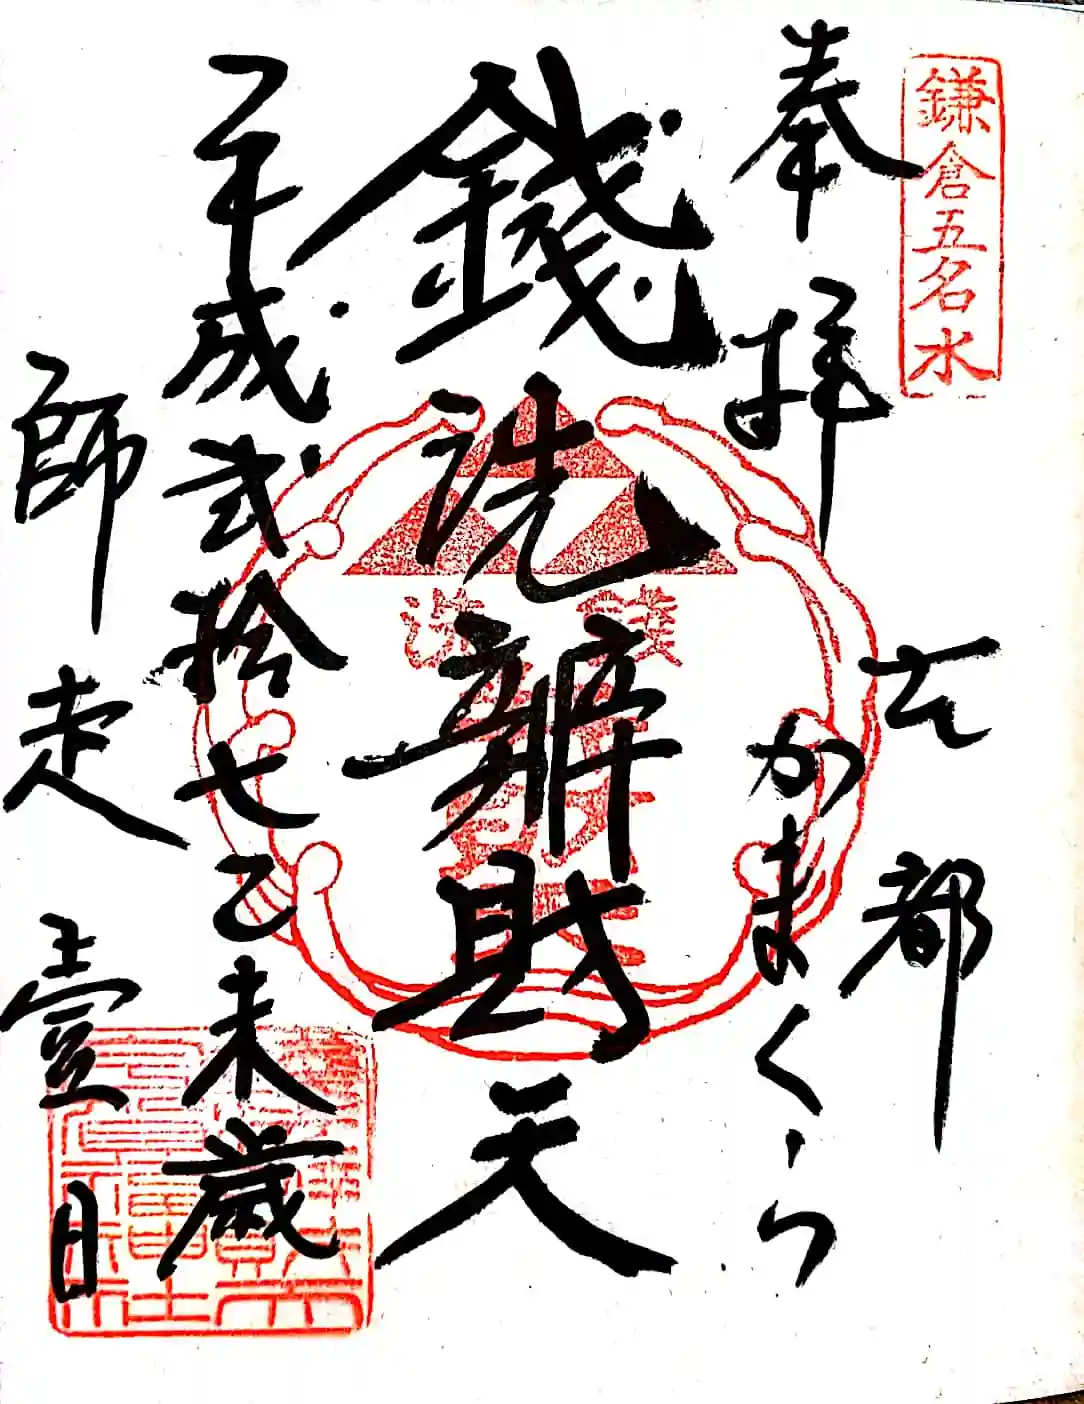 鎌倉五名水
奉拝
古都
かまくら
錢洗辨財天
平成弐拾七乙未歳
師走壹日
錢洗